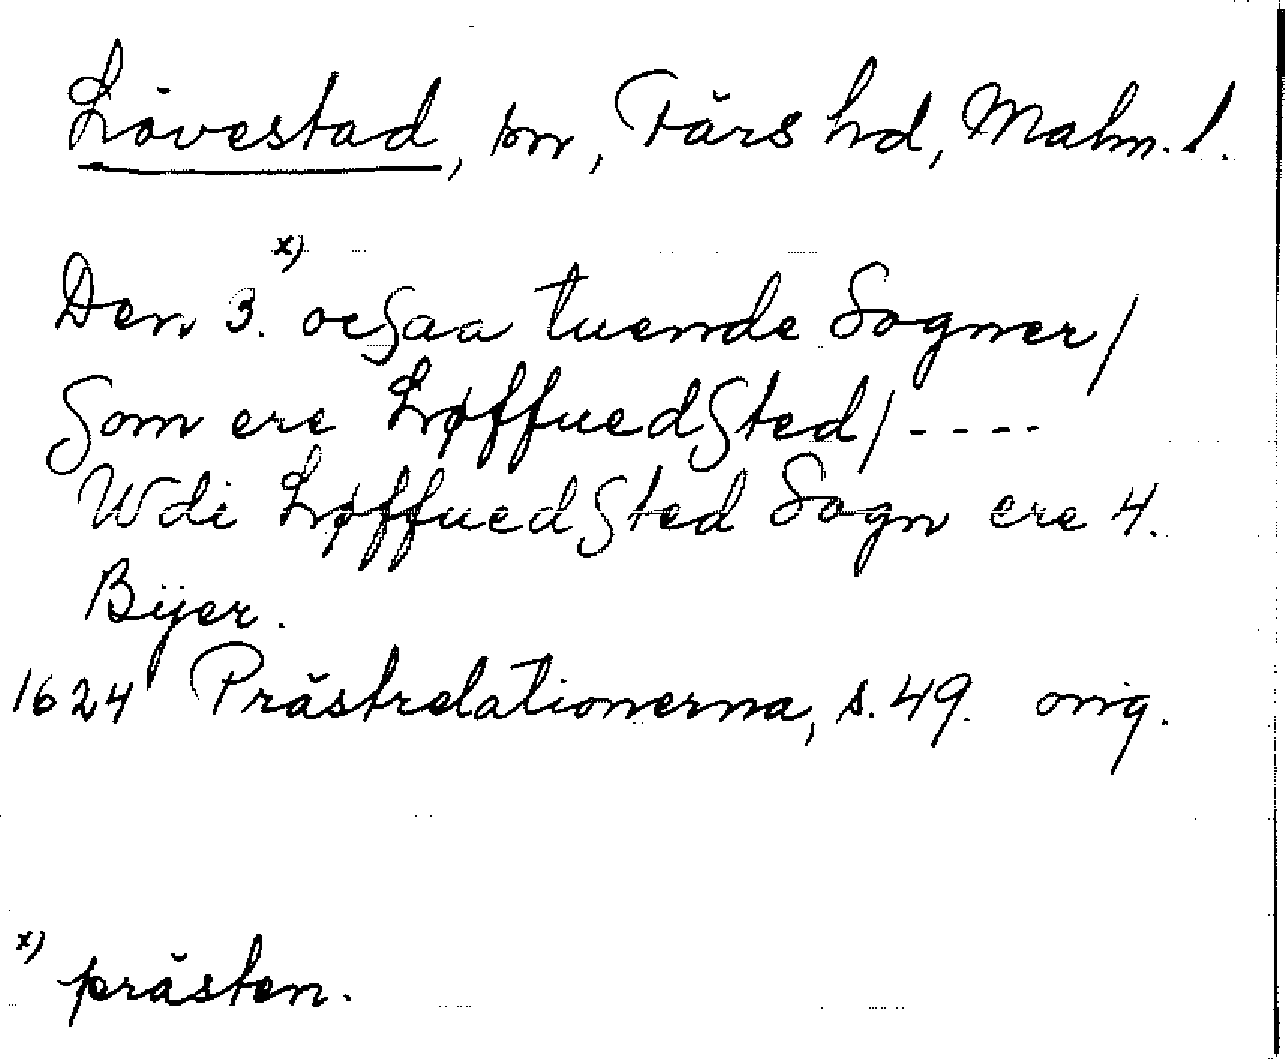 Lövestad, sn, Färs hd, Malm. l.
Den 3.x) ocſaa tuende Sogner/
ſom ere Løffuedſted/----
Wdi Løffuedſted Sogn ere 4.
Bÿer.
1624 Prästrelationerna, s. 49. orig.
x) prästen.